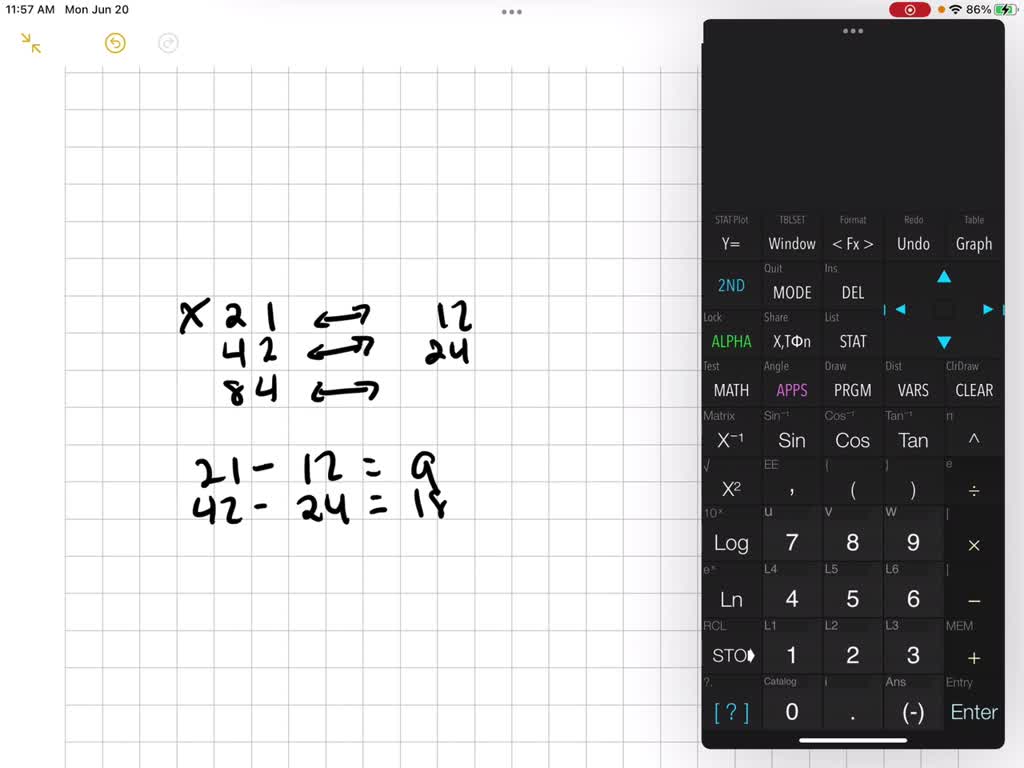 11:57 AM Mon Jun 20
86%
X 21 ↔ 12
42 ↔ 24
84 ↔
21 - 12 = 9
42 - 24 = 18
STAT Plot TBLSET Format Redo Table
Y= Window < Fx > Undo Graph
Quit Ins
2ND MODE DEL
Lock Share List
ALPHA X,TΦn STAT
Test Angle Draw Dist ClrDraw
MATH APPS PRGM VARS CLEAR
Matrix Sin⁻¹ Cos⁻¹ Tan⁻¹ π
X⁻¹ Sin Cos Tan ^
√ EE { } e
X² , ( ) ÷
10ˣ u v w [
Log 7 8 9 ×
eˣ L4 L5 L6 ]
Ln 4 5 6 −
RCL L1 L2 L3 MEM
STO 1 2 3 +
?. Catalog i Ans Entry
[ ? ] 0 . (-) Enter